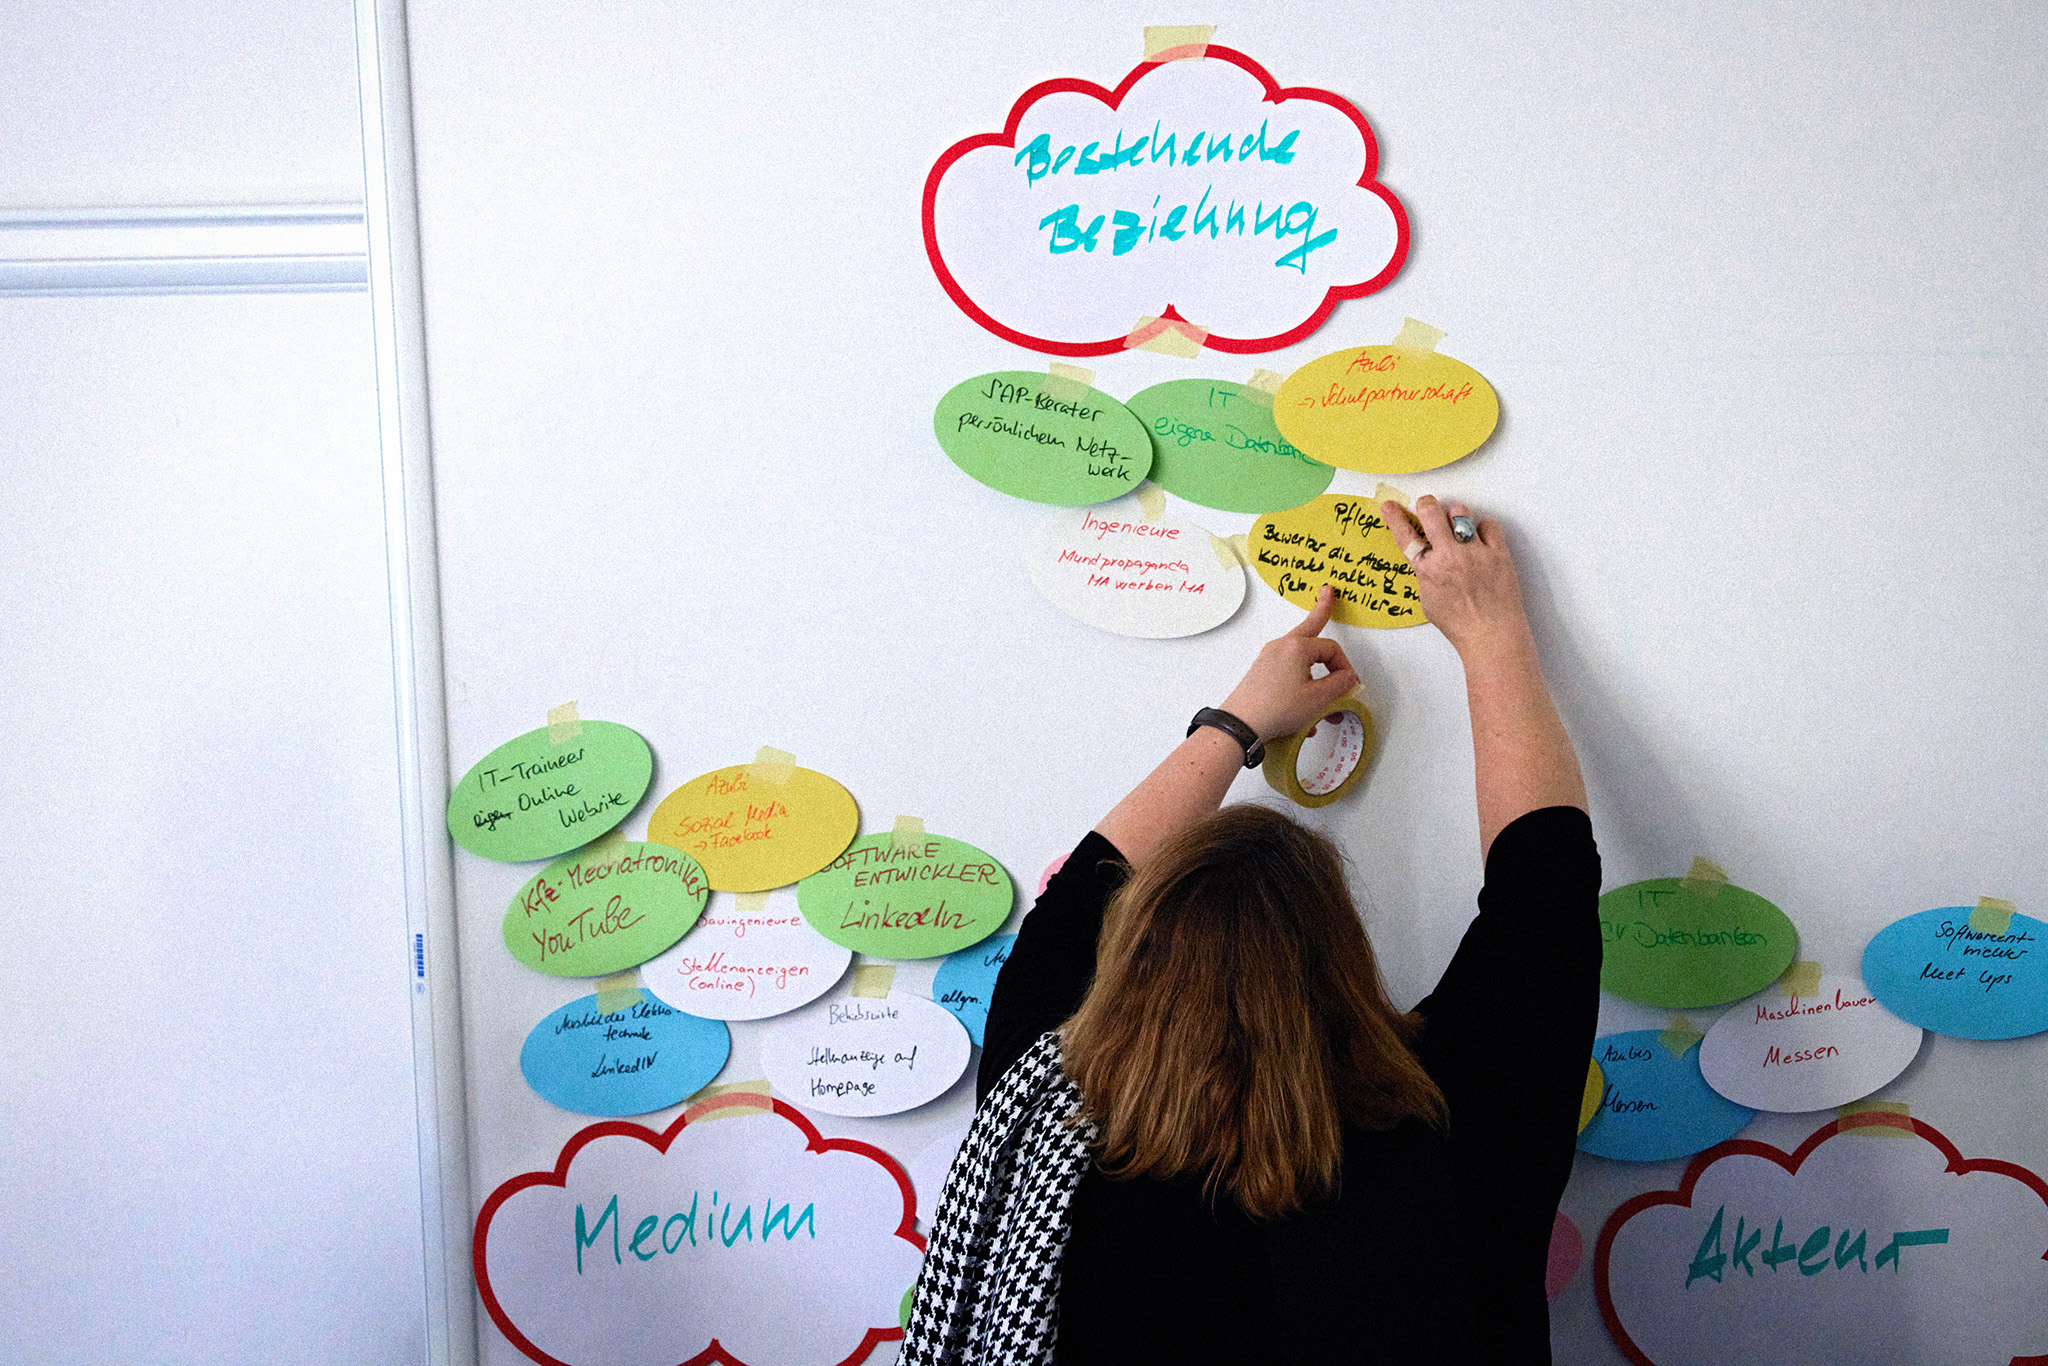 Bestehende
Beziehung
SAP-Berater
persönlichem Netz-
werk
IT
eigene
Azubi
→ Schulpartnerschaft
Ingenieure
Mundpropaganda
MA werben MA
Pflege
Bewerber die Absagen
Kontakt halten & zu
Geb.
IT-Trainer
eigen Online
Website
Azubi
Sozial Media
→ Facebook
Kfz-Mechatroniker
YouTube
SOFTWARE
ENTWICKLER
LinkedIn
Bauingenieure
Stellenanzeigen
(online)
allgm.
LinkedIN
Stellenanzeige auf
Homepage
Medium
IT
CV Datenbanken
Softwareent-
wickler
Meet Ups
Maschinenbauer
Messen
Azubis
Messen
Akteur